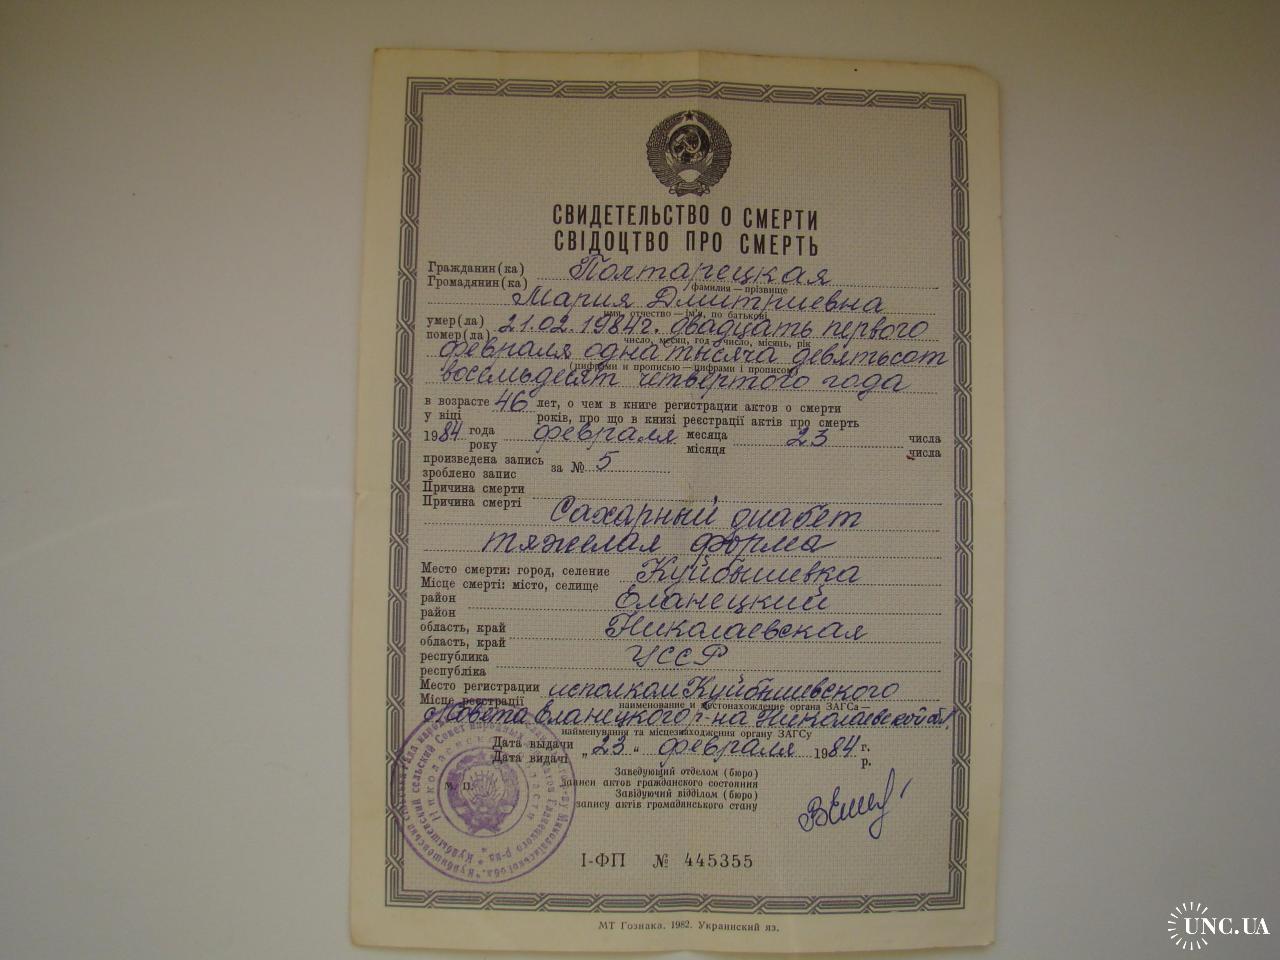 СВИДЕТЕЛЬСТВО О СМЕРТИ
СВІДОЦТВО ПРО СМЕРТЬ
Гражданин(ка) Полтарецкая
Громадянин(ка)
фамилия — прізвище
Мария Дмитриевна
имя, отчество — ім'я, по батькові
умер(ла) 21.02.1984г. двадцать первого
помер(ла)
число, месяц, год — число, місяць, рік
февраля одна тысяча девятьсот
(цифрами и прописью — цифрами і прописом)
восемьдесят четвертого года
в возрасте 46 лет, о чем в книге регистрации актов о смерти
у віці років, про що в книзі реєстрації актів про смерть
1984 года февраля месяца 23 числа
року місяця числа
произведена запись за № 5
зроблено запис
Причина смерти
Причина смерті
Сахарный диабет
тяжелая форма
Место смерти: город, селение Куйбышевка
Місце смерті: місто, селище
район Еланецкий
район
область, край Николаевская
область, край
республика УССР
республіка
Место регистрации исполком Куйбышевского
Місце реєстрації
наименование и местонахождение органа ЗАГСа —
с/Совета Еланецкого р-на Николаевской обл
найменування та місцезнаходження органу ЗАГСу
Дата выдачи „23“ февраля 1984 г.
Дата видачі р.
Заведующий отделом (бюро)
записи актов гражданского состояния
Завідуючий відділом (бюро)
запису актів громадянського стану
М. П.
I-ФП № 445355
МТ Гознака. 1982. Украинский яз.
UNC.UA